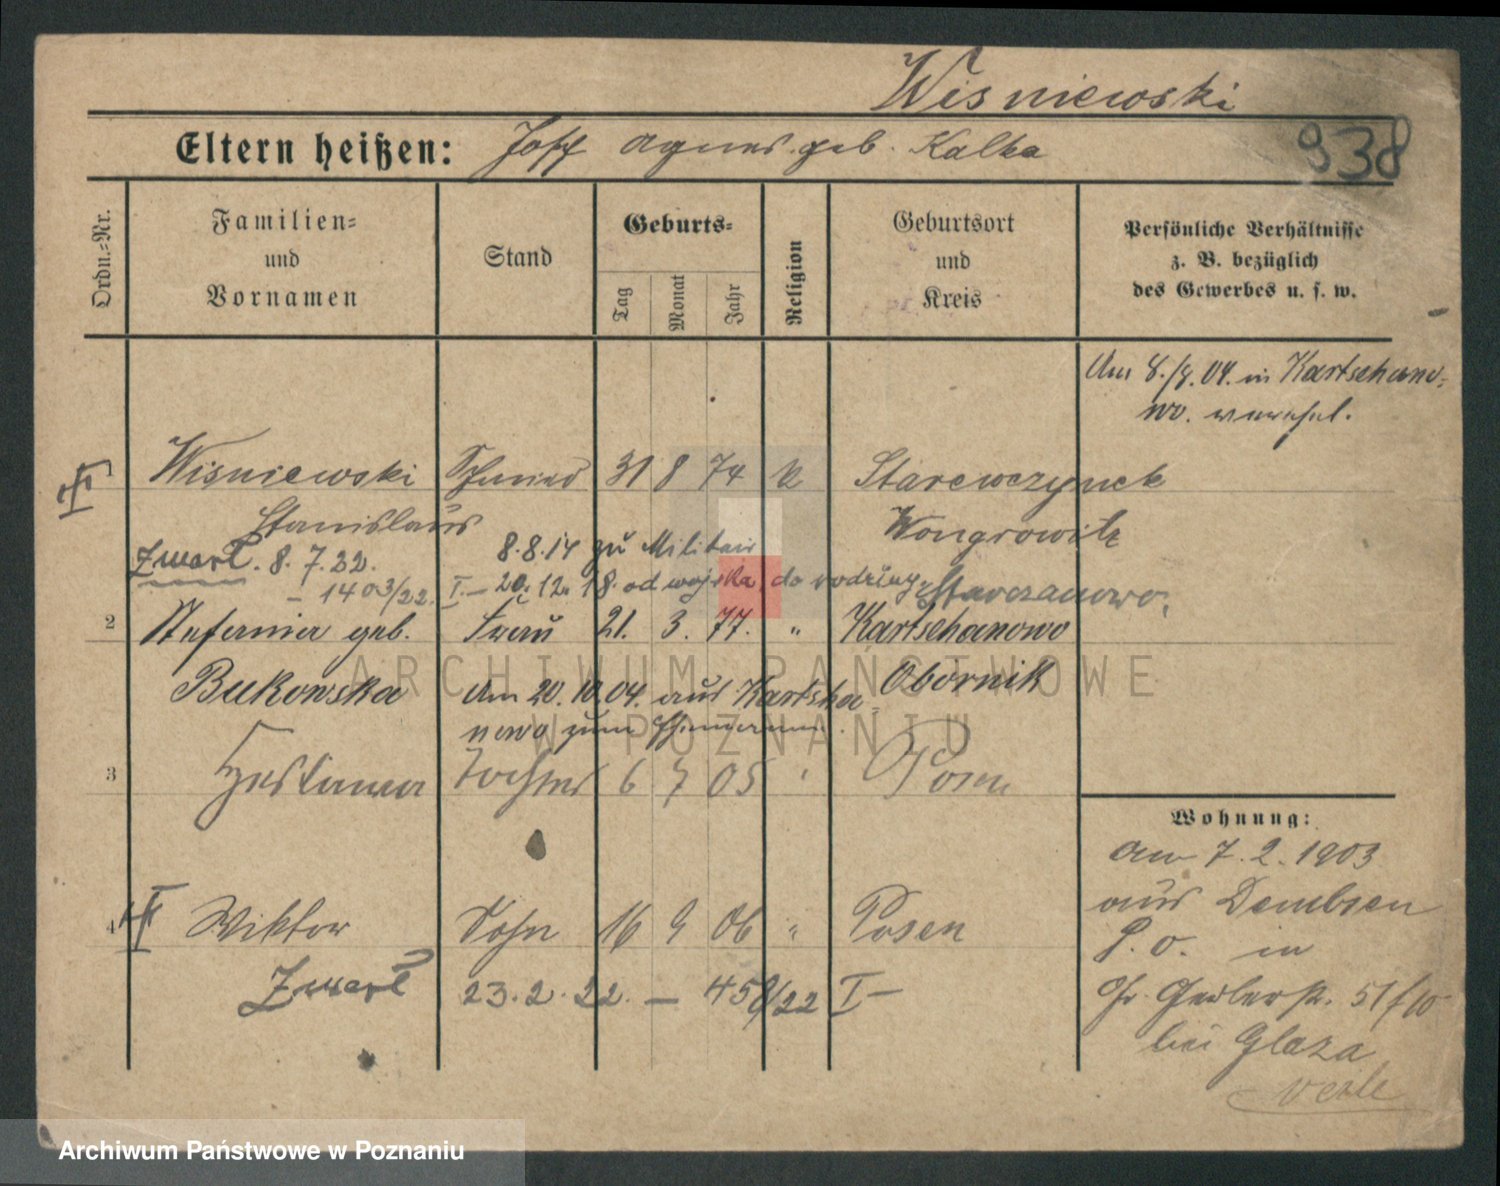 Wisniewski
938
Eltern heißen: Josef Agnes geb. Kalka
Ordn.-Nr.
Familien-
und
Vornamen
Stand
Geburts-
Tag
Monat
Jahr
Religion
Geburtsort
und
Kreis
Persönliche Verhältnisse
z. B. bezüglich
des Gewerbes u. s. w.
Am 8./8. 04. in Kartschano-
wo. verehel.
1 Wisniewski Schmied 31 8 74 k Starewczynek
Stanislaus Wongrowitz
Zmarł. 8. 7. 22. 8.8.14 zu Militair
- 1403/22. I.- 20. 12. 18. od wojska, do rodziny Starczanowo.
2 Stefania geb. Frau 21. 3. 77. " Kartschanowo
Bukowska Obornik
Am 20. 10. 04. aus Kartscha
nowo zum Ehemann.
3 Tochter 6 7 05 " Posen
4 Wiktor Sohn 16 9 06 " Posen
Zmarł 23. 2. 22. — 458/22 I—
Wohnung:
Am 7. 2. 1903
aus Dembsen
P. O. in
Gr. Gerberstr. 51/10
bei Glaza
ARCHIWUM PAŃSTWOWE
W POZNANIU
Archiwum Państwowe w Poznaniu